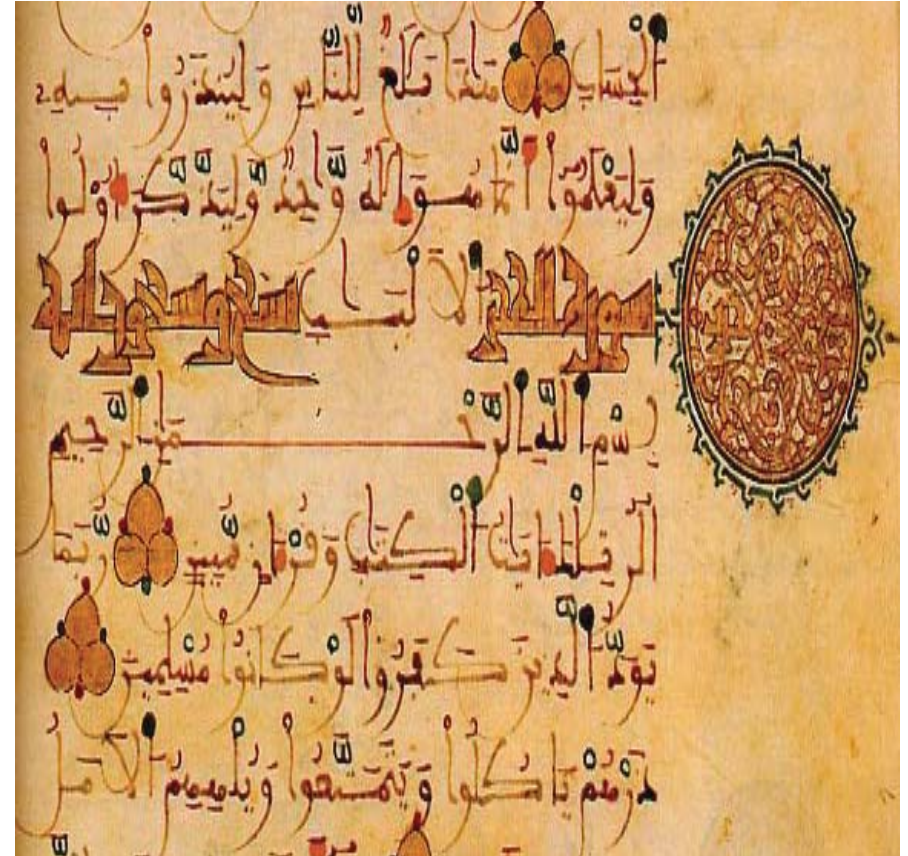 الْحِسَابِ هَٰذَا بَلَٰغٌ لِّلنَّاسِ وَلِيُنذَرُوا بِهِ
وَلِيَعْلَمُوا أَنَّمَا هُوَ إِلَٰهٌ وَّاحِدٌ وَّلِيَذَّكَّرَ أُوْلُوا
سورة الحجر الْأَلْبَٰبِ تسع وتسعون اية
بِسْمِ اللَّهِ الرَّحْمَٰنِ الرَّحِيمِ
الَر تِلْكَ ءَايَٰتُ الْكِتَٰبِ وَقُرْءَانٍ مُّبِينٍ رُّبَمَا
يَوَدُّ الَّذِينَ كَفَرُوا لَوْ كَانُوا مُسْلِمِينَ
ذَرْهُمْ يَأْكُلُوا وَيَتَمَتَّعُوا وَيُلْهِهِمُ الْأَمَلُ